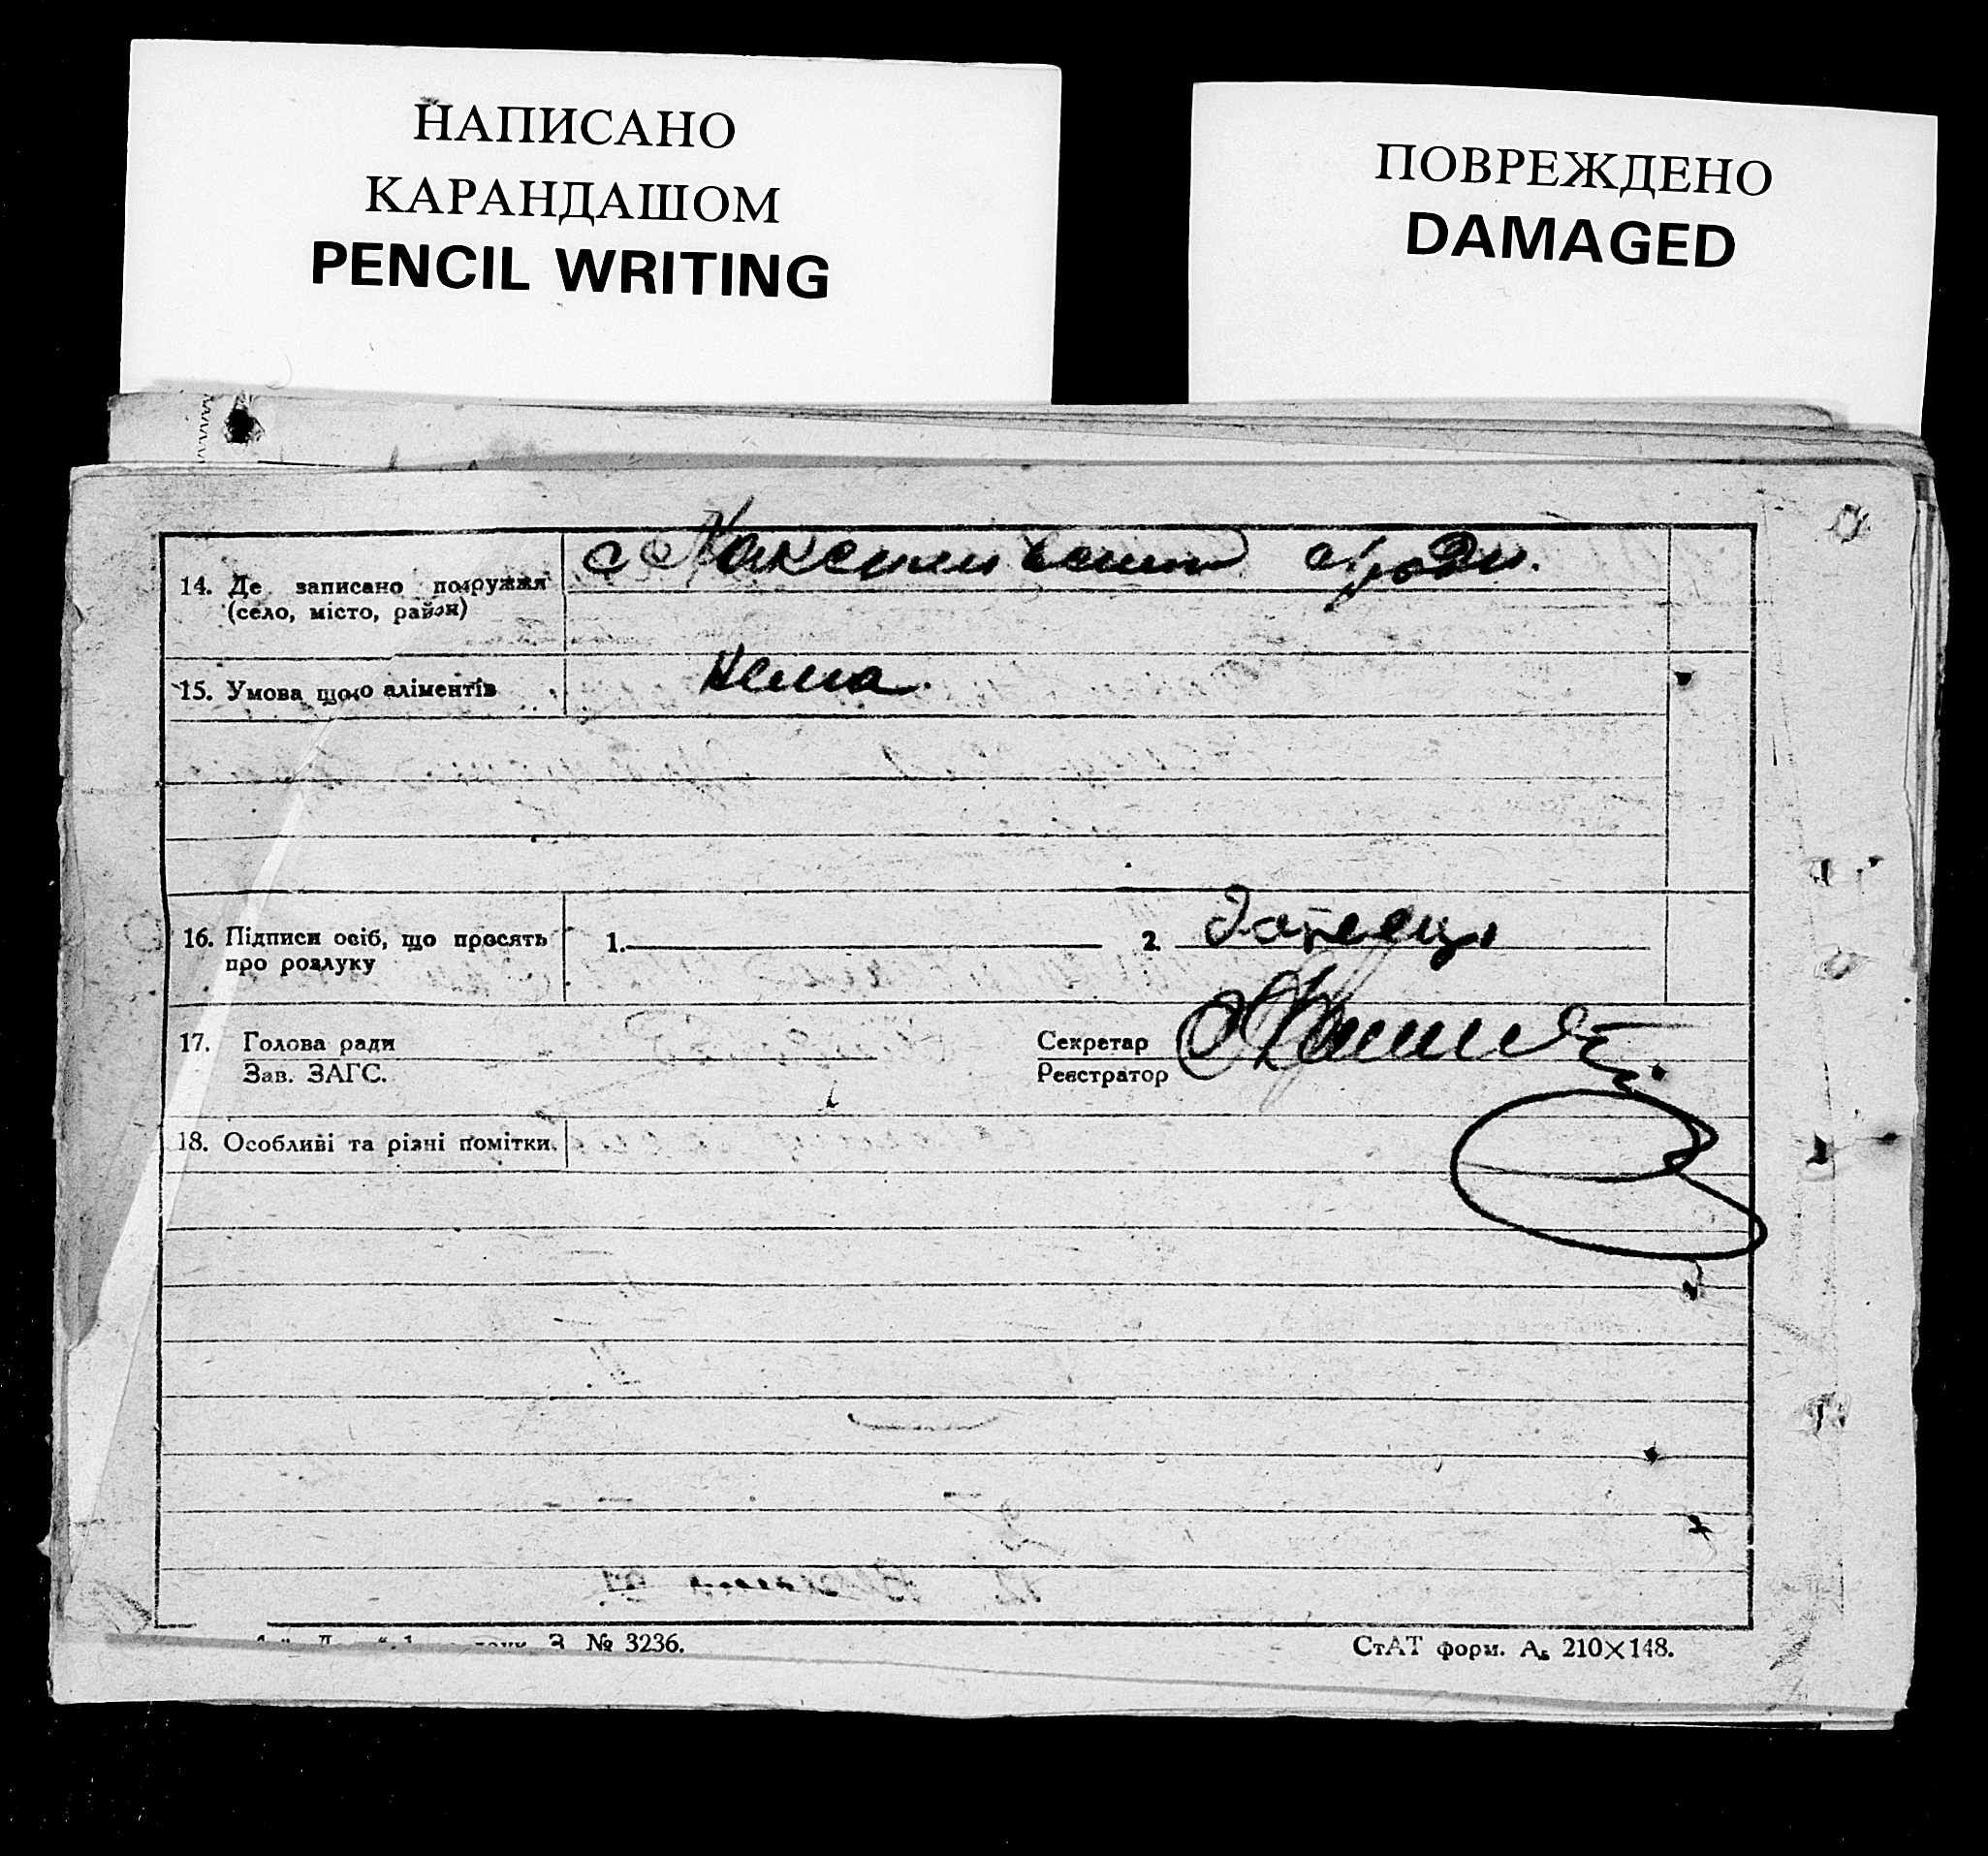 НАПИСАНО
КАРАНДАШОМ
PENCIL WRITING
ПОВРЕЖДЕНО
DAMAGED
14. Де записано подружжя
(село, місто, район)
15. Умова щодо аліментів
Нема
16. Підписи осіб, що просять
про розлуку
1. 2.
17. Голова ради Секретар
Зав. ЗАГС. Реєстратор
18. Особливі та різні помітки
З. № 3236. СтАТ форм. А₅ 210×148.